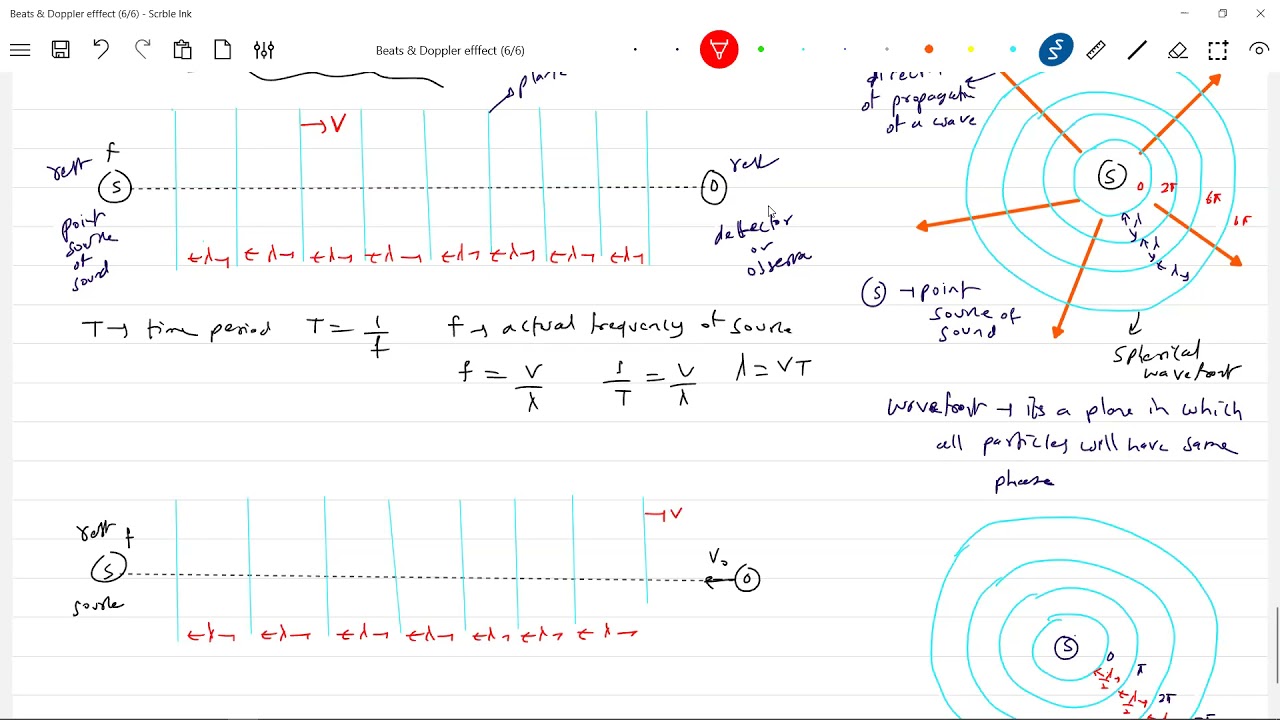 Beats & Doppler efffect (6/6) - Scrble Ink
Beats & Doppler efffect (6/6)
plane
→ V
rest
f
S
point
source
of
sound
rest
O
detector
or
observer
←λ→ ←λ→ ←λ→ ←λ→ ←λ→ ←λ→ ←λ→ ←λ→
T → time period T = 1/f f → actual frequency of source
f = V/λ 1/T = V/λ λ = VT
direction
of propagation
of a wave
S
0 2π 6π 6π
λ
λ
←λ→
S → point
source of
sound
Spherical
wavefront
wavefront → its a plane in which
all particles will have same
phase
→ V
rest f
S
source
V₀
O
←λ→ ←λ→ ←λ→ ←λ→ ←λ→ ←λ→ ←λ→
S
0
π
2π
←λ/2→
←λ/2→